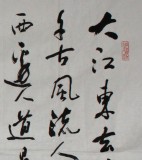 大江東去
千古風流人
西邊人道是